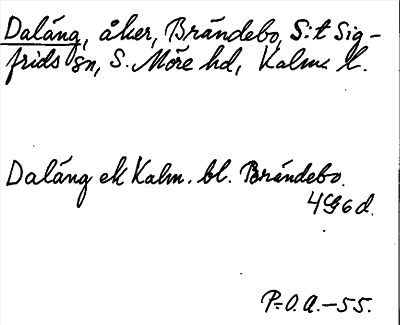 Daläng, åker, Brändebo, S:t Sig-
frids sn, S. Möre hd, Kalm. l.
Daläng ek Kalm. bl. Brändebo.
4G6d.
P.-O.A.-55.